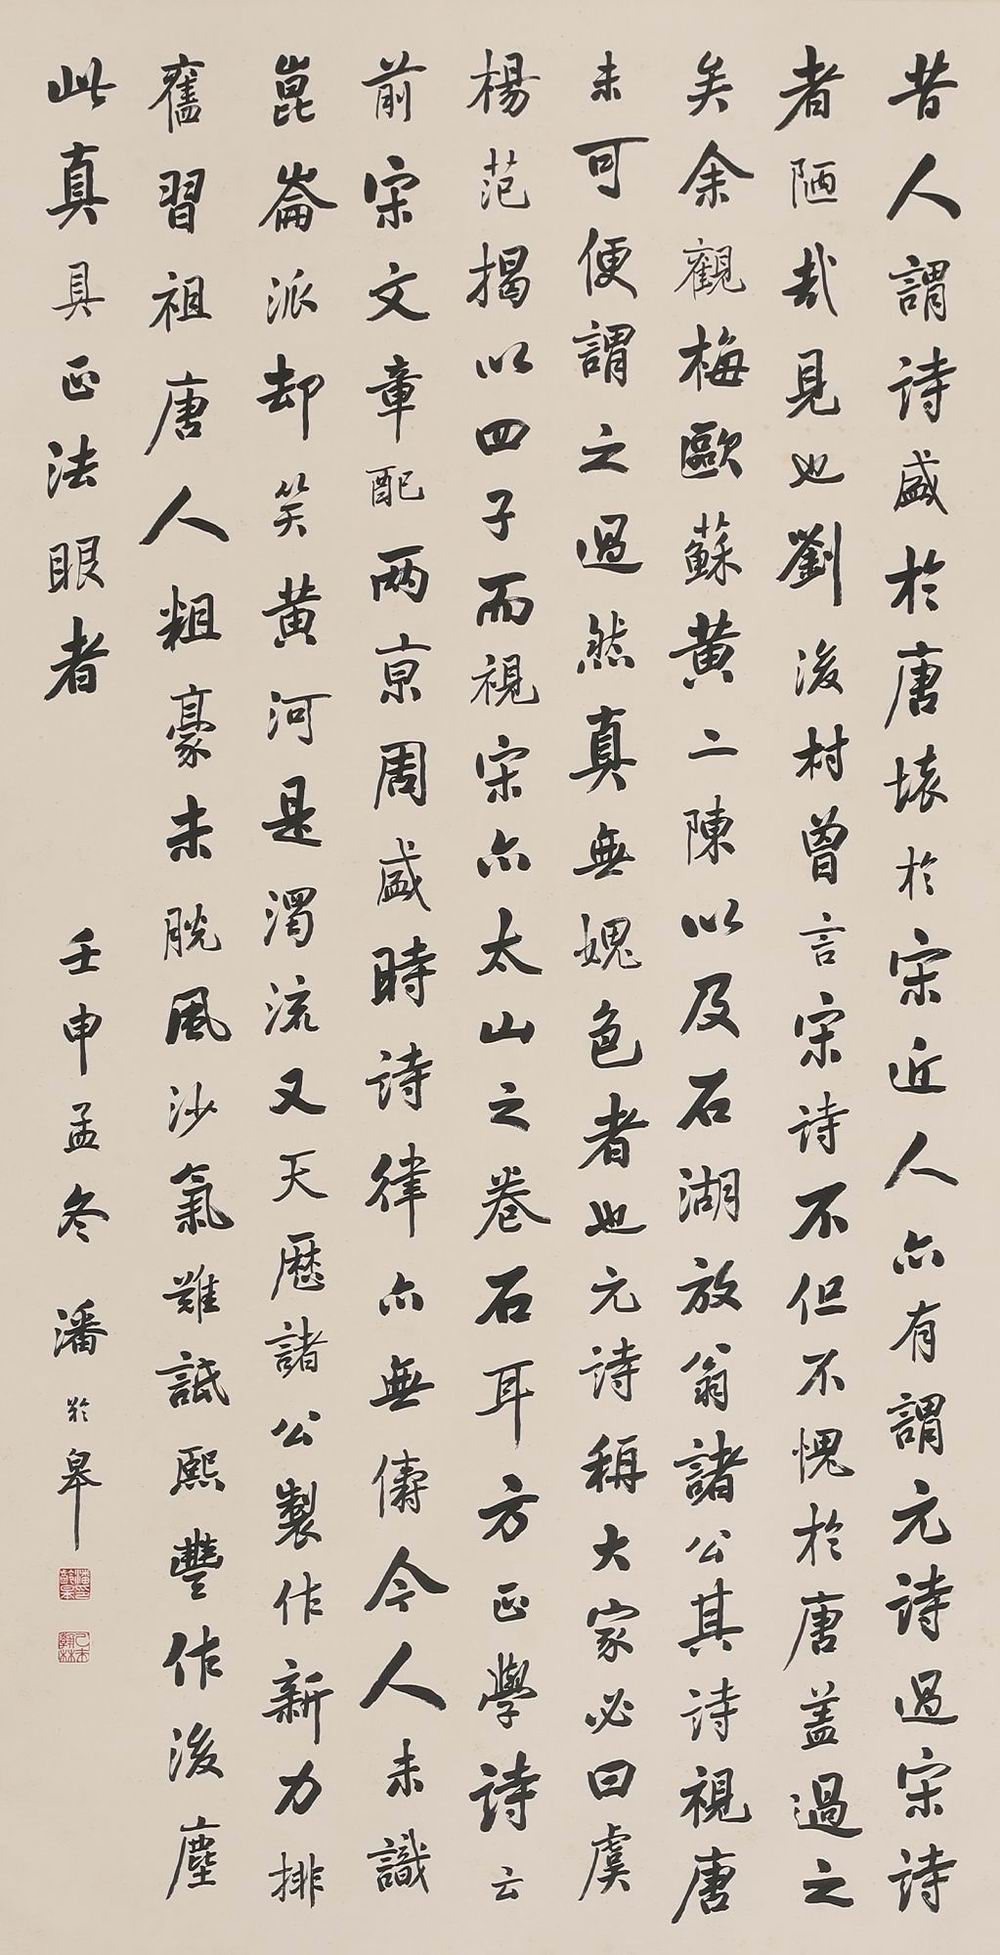 昔人謂詩盛於唐壞於宋近人亦有謂元詩過宋詩
者陋哉見也劉後村曾言宋詩不但不愧於唐蓋過之
矣余觀梅歐蘇黃二陳以及石湖放翁諸公其詩視唐
未可便謂之過然真無媿色者也元詩稱大家必曰虞
楊范揭以四子而視宋亦太山之卷石耳方正學詩云
前宋文章配兩京周盛時詩律亦無儔今人未識
崑崙派却笑黃河是濁流又天歷諸公製作新力排
舊習祖唐人粗豪未脫風沙氣難詆熙豐作後塵
此真具正法眼者
壬申孟冬 潘齡皋
潘印齡皋
乙未翰林